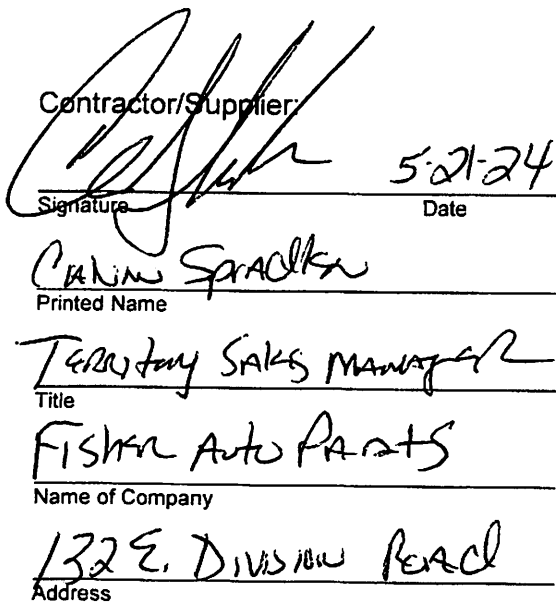 Contractor/Supplier:
5-21-24
Signature Date
Printed Name
Territory Sales Manager
Title
Fisher Auto Parts
Name of Company
132 E. Division Road
Address